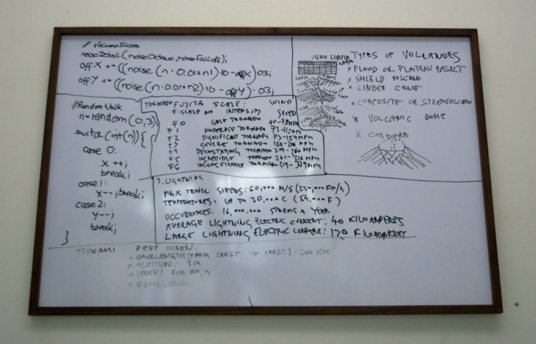 // VolcanoSlices
noiseDetail(noiseOctave, noiseFalloff);
offX += ((noise(n·0.01+n1)·10-offX)·0.3;
offY += ((noise(n·0.01+n2)·10-offY)·0.3;
//Random Walk
n=random(0,3);
switch(int(n)){
case 0:
x++;
break;
case 1:
x--; break;
case 2:
y--;
break;
}
TORNADO FUJITA SCALE: WIND
F-SCALE NO INTENSITY SPEED
F0 GALE TORNADO 40-72MPH
F1 MODERATE TORNADO 73-112MPH
F2 SIGNIFICANT TORNADO 113-157MPH
F3 SEVERE TORNADO
DEVASTATING TORNADO
F5 INCREDIBLE TORNADO 261-318MPH
F6 INCONCEIVABLE TORNADO 319-379MPH
VERY LIQUID
TYPES OF VOLCANOES
× FLOOD OR PLATEAU BASALT
× SHIELD VOLCANO
× CINDER CONE
× COMPOSITE OR STRATOVOLCANO
× VOLCANIC DOME
× CALDERA
LIGHTNING
MAX TRAVEL SPEEDS: 60,000 M/S
TEMPERATURES: UP TO 30,000 C (54,000 F)
OCCURENCES: 16,000,000 STORMS A YEAR
AVERAGE LIGHTNING ELECTRIC CURRENT: 40 KILOAMPERES
LARGE LIGHTNING ELECTRIC CURRENT: 120 KILOAMPERES
TSUNAMI DEEP OCEAN:
WAVELENGTH (FROM CREST TO CREST)
AMPLITUDE: 1m
SPEED: 800 km/h